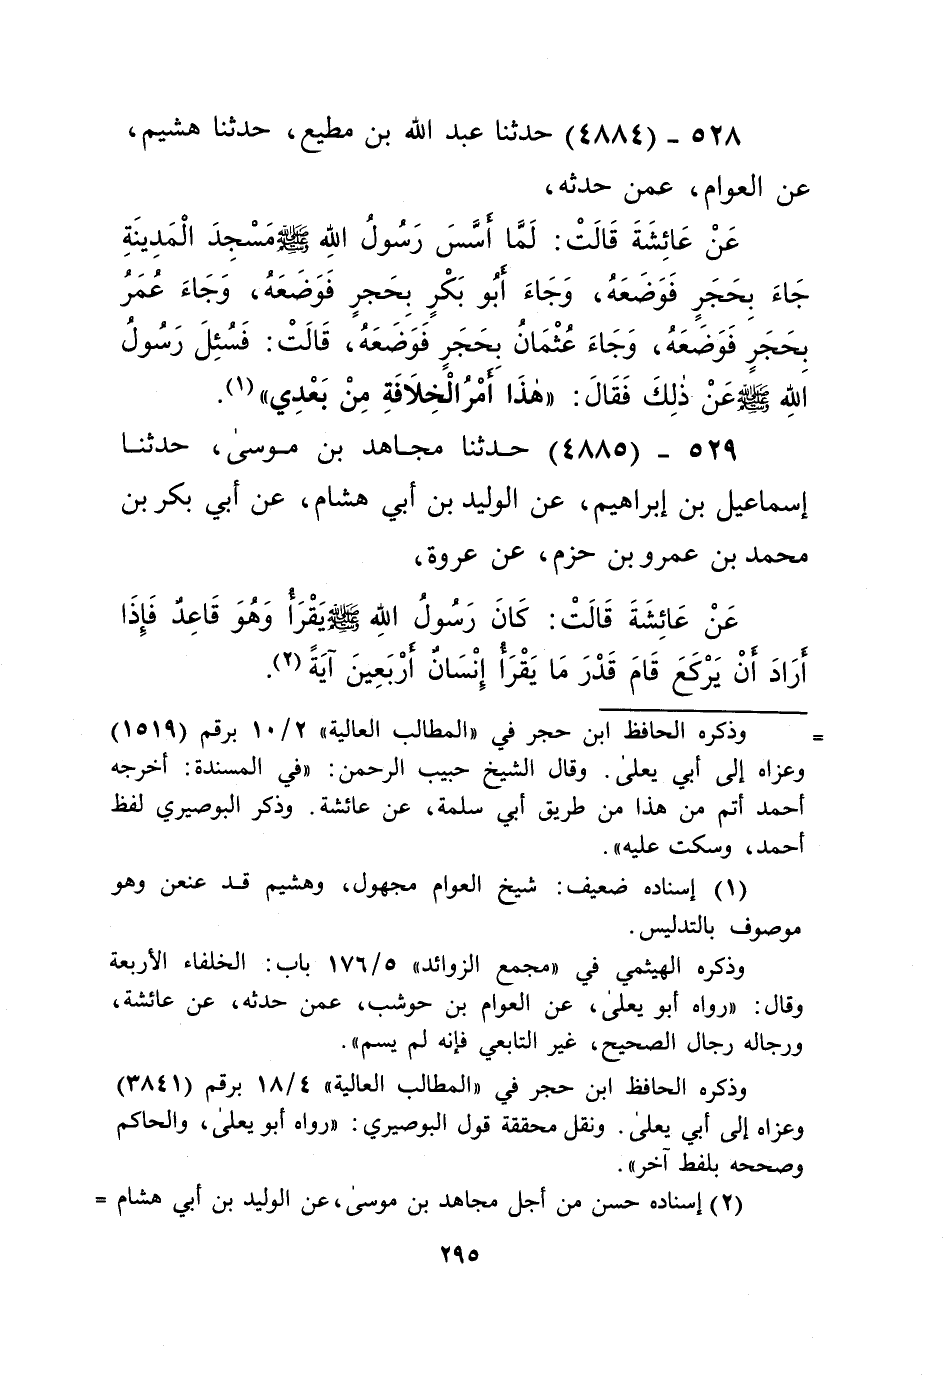 ٥٢٨ ـ (٤٨٨٤) حدثنا عبد الله بن مطيع، حدثنا هشيم،
عن العوام، عمن حدثه،
عَنْ عَائِشَةَ قَالَتْ: لَمَّا أَسَّسَ رَسُولُ اللهِ ﷺ مَسْجِدَ الْمَدِينَةِ
جَاءَ بِحَجَرٍ فَوَضَعَهُ، وَجَاءَ أَبُو بَكْرٍ بِحَجرٍ فَوَضَعَهُ، وَجَاءَ عُمَرُ
بِحَجَرٍ فَوَضَعَهُ، وَجَاءَ عُثْمَانُ بِحَجَرٍ فَوَضَعَهُ، قَالَتْ: فَسُئِلَ رَسُولُ
اللهِ ﷺ عَنْ ذٰلِكَ فَقَالَ: «هٰذَا أَمْرُ الْخِلَافَةِ مِنْ بَعْدِي»(١).
٥٢٩ ـ (٤٨٨٥) حـدثنا مجـاهد بن مـوسىٰ، حدثنـا
إسماعيل بن إبراهيم، عن الوليد بن أبي هشام، عن أبي بكر بن
محمد بن عمرو بن حزم، عن عروة،
عَنْ عَائِشَةَ قَالَتْ: كَانَ رَسُولُ اللهِ ﷺ يَقْرَأُ وَهُوَ قَاعِدٌ فَإِذَا
أَرَادَ أَنْ يَرْكَعَ قَامَ قَدْرَ مَا يَقْرَأُ إِنْسَانٌ أَرْبَعِينَ آيَةً(٢).
= وذكره الحافظ ابن حجر في «المطالب العالية» ١٠/٢ برقم (١٥١٩)
وعزاه إلى أبي يعلىٰ. وقال الشيخ حبيب الرحمن: «في المسندة: أخرجه
أحمد أتم من هذا من طريق أبي سلمة، عن عائشة. وذكر البوصيري لفظ
أحمد، وسكت عليه».
(١) إسناده ضعيف: شيخ العوام مجهول، وهشيم قـد عنعن وهو
موصوف بالتدليس.
وذكره الهيثمي في «مجمع الزوائد» ١٧٦/٥ باب: الخلفاء الأربعة
وقال: «رواه أبو يعلىٰ، عن العوام بن حوشب، عمن حدثه، عن عائشة،
ورجاله رجال الصحيح، غير التابعي فإنه لم يسم».
وذكره الحافظ ابن حجر في «المطالب العالية» ١٨/٤ برقم (٣٨٤١)
وعزاه إلى أبي يعلىٰ. ونقل محققة قول البوصيري: «رواه أبو يعلىٰ، والحاكم
وصححه بلفط آخر».
(٢) إسناده حسن من أجل مجاهد بن موسىٰ، عن الوليد بن أبي هشام =
٢٩٥